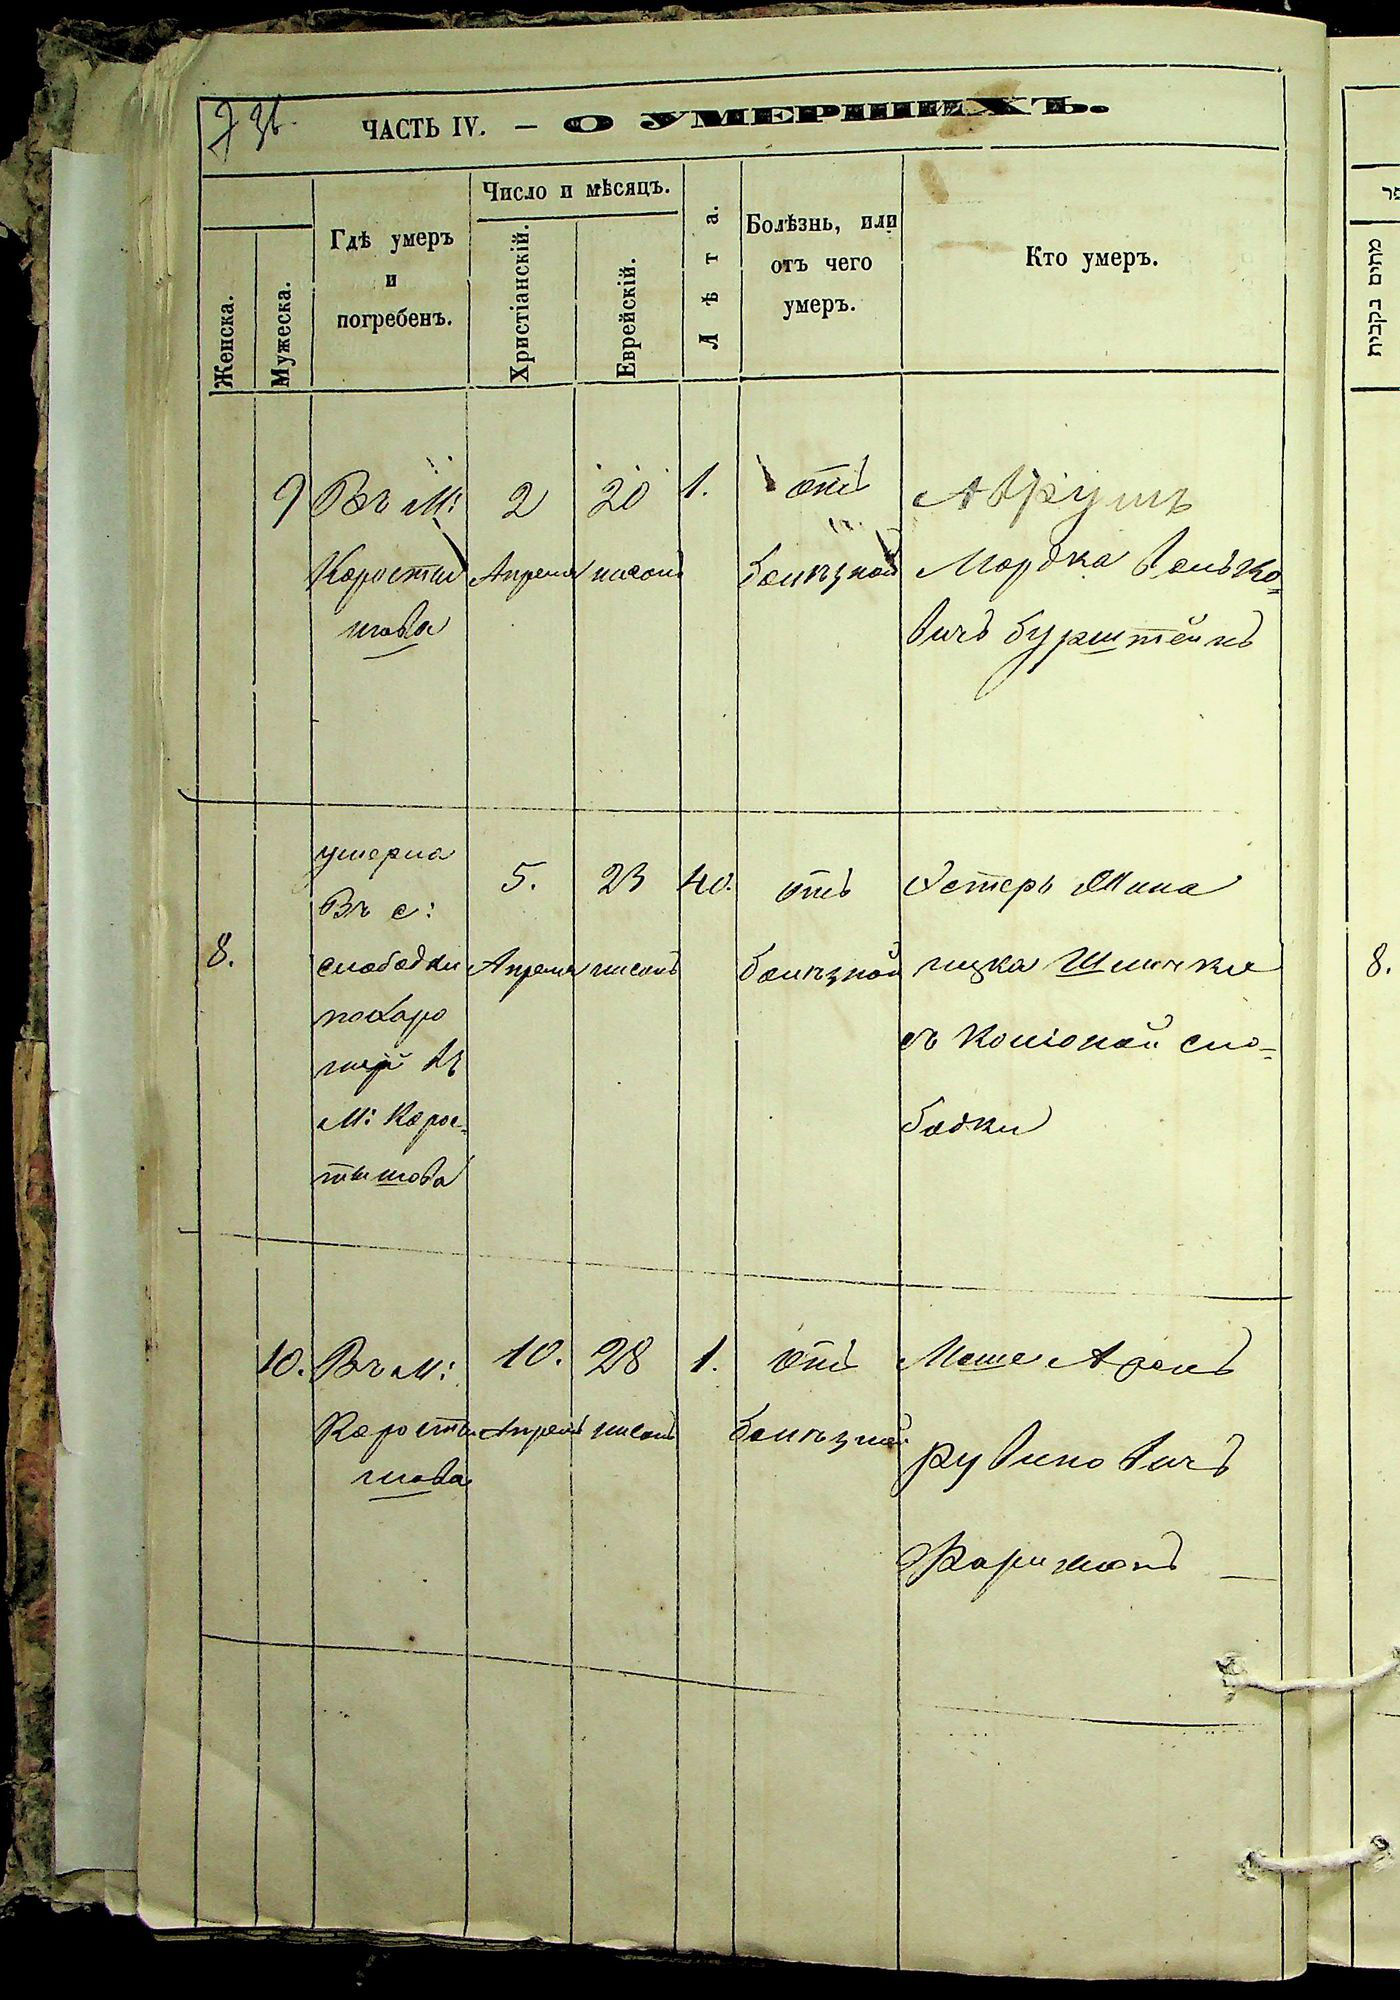 ЧАСТЬ IV. — О УМЕРШИХЪ.
Женска.
Мужеска.
Гдѣ умеръ
и
погребенъ.
Число и мѣсяцъ.
Христіанскій.
Еврейскій.
Лѣта.
Болѣзнь, или
отъ чего
умеръ.
Кто умеръ.
9
Въ м:
Коросты
шова
2
Апреля
20
нисонъ
1.
отъ
болезной
Аврумъ
Мордка Волько-
вичъ Бурштейнъ
8.
умерла
Въ с:
слободки
похоро
въ
м: Корос-
тышова
5.
Апреля
23
нисонъ
40.
отъ
болезной
Эстерь
с
сло-
бодки
10.
Въ м:
Коросты
шова
10.
Апрель
28
нисонъ
1.
отъ
болезной
Моше Аронъ
Рувиновичъ
8.
מתים נקבית